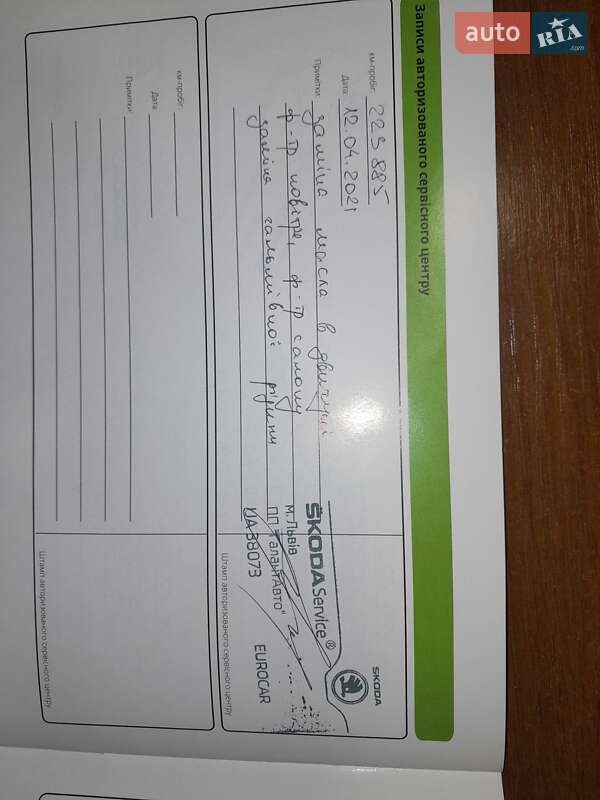 auto RIA .com
Записи авторизованого сервісного центру
км-пробіг: 223 885
Дата: 12.04.2021
Примітки: заміна масла в двигуні
ф-тр повітря, ф-тр салону
заміна гальмівної рідини
ŠKODA
ŠKODA Service®
М.Львів
ПП "ГалантАвто"
UA 38073
EUROCAR
Штамп авторизованого сервісного центру
км-пробіг:
Дата:
Примітки:
Штамп авторизованого сервісного центру